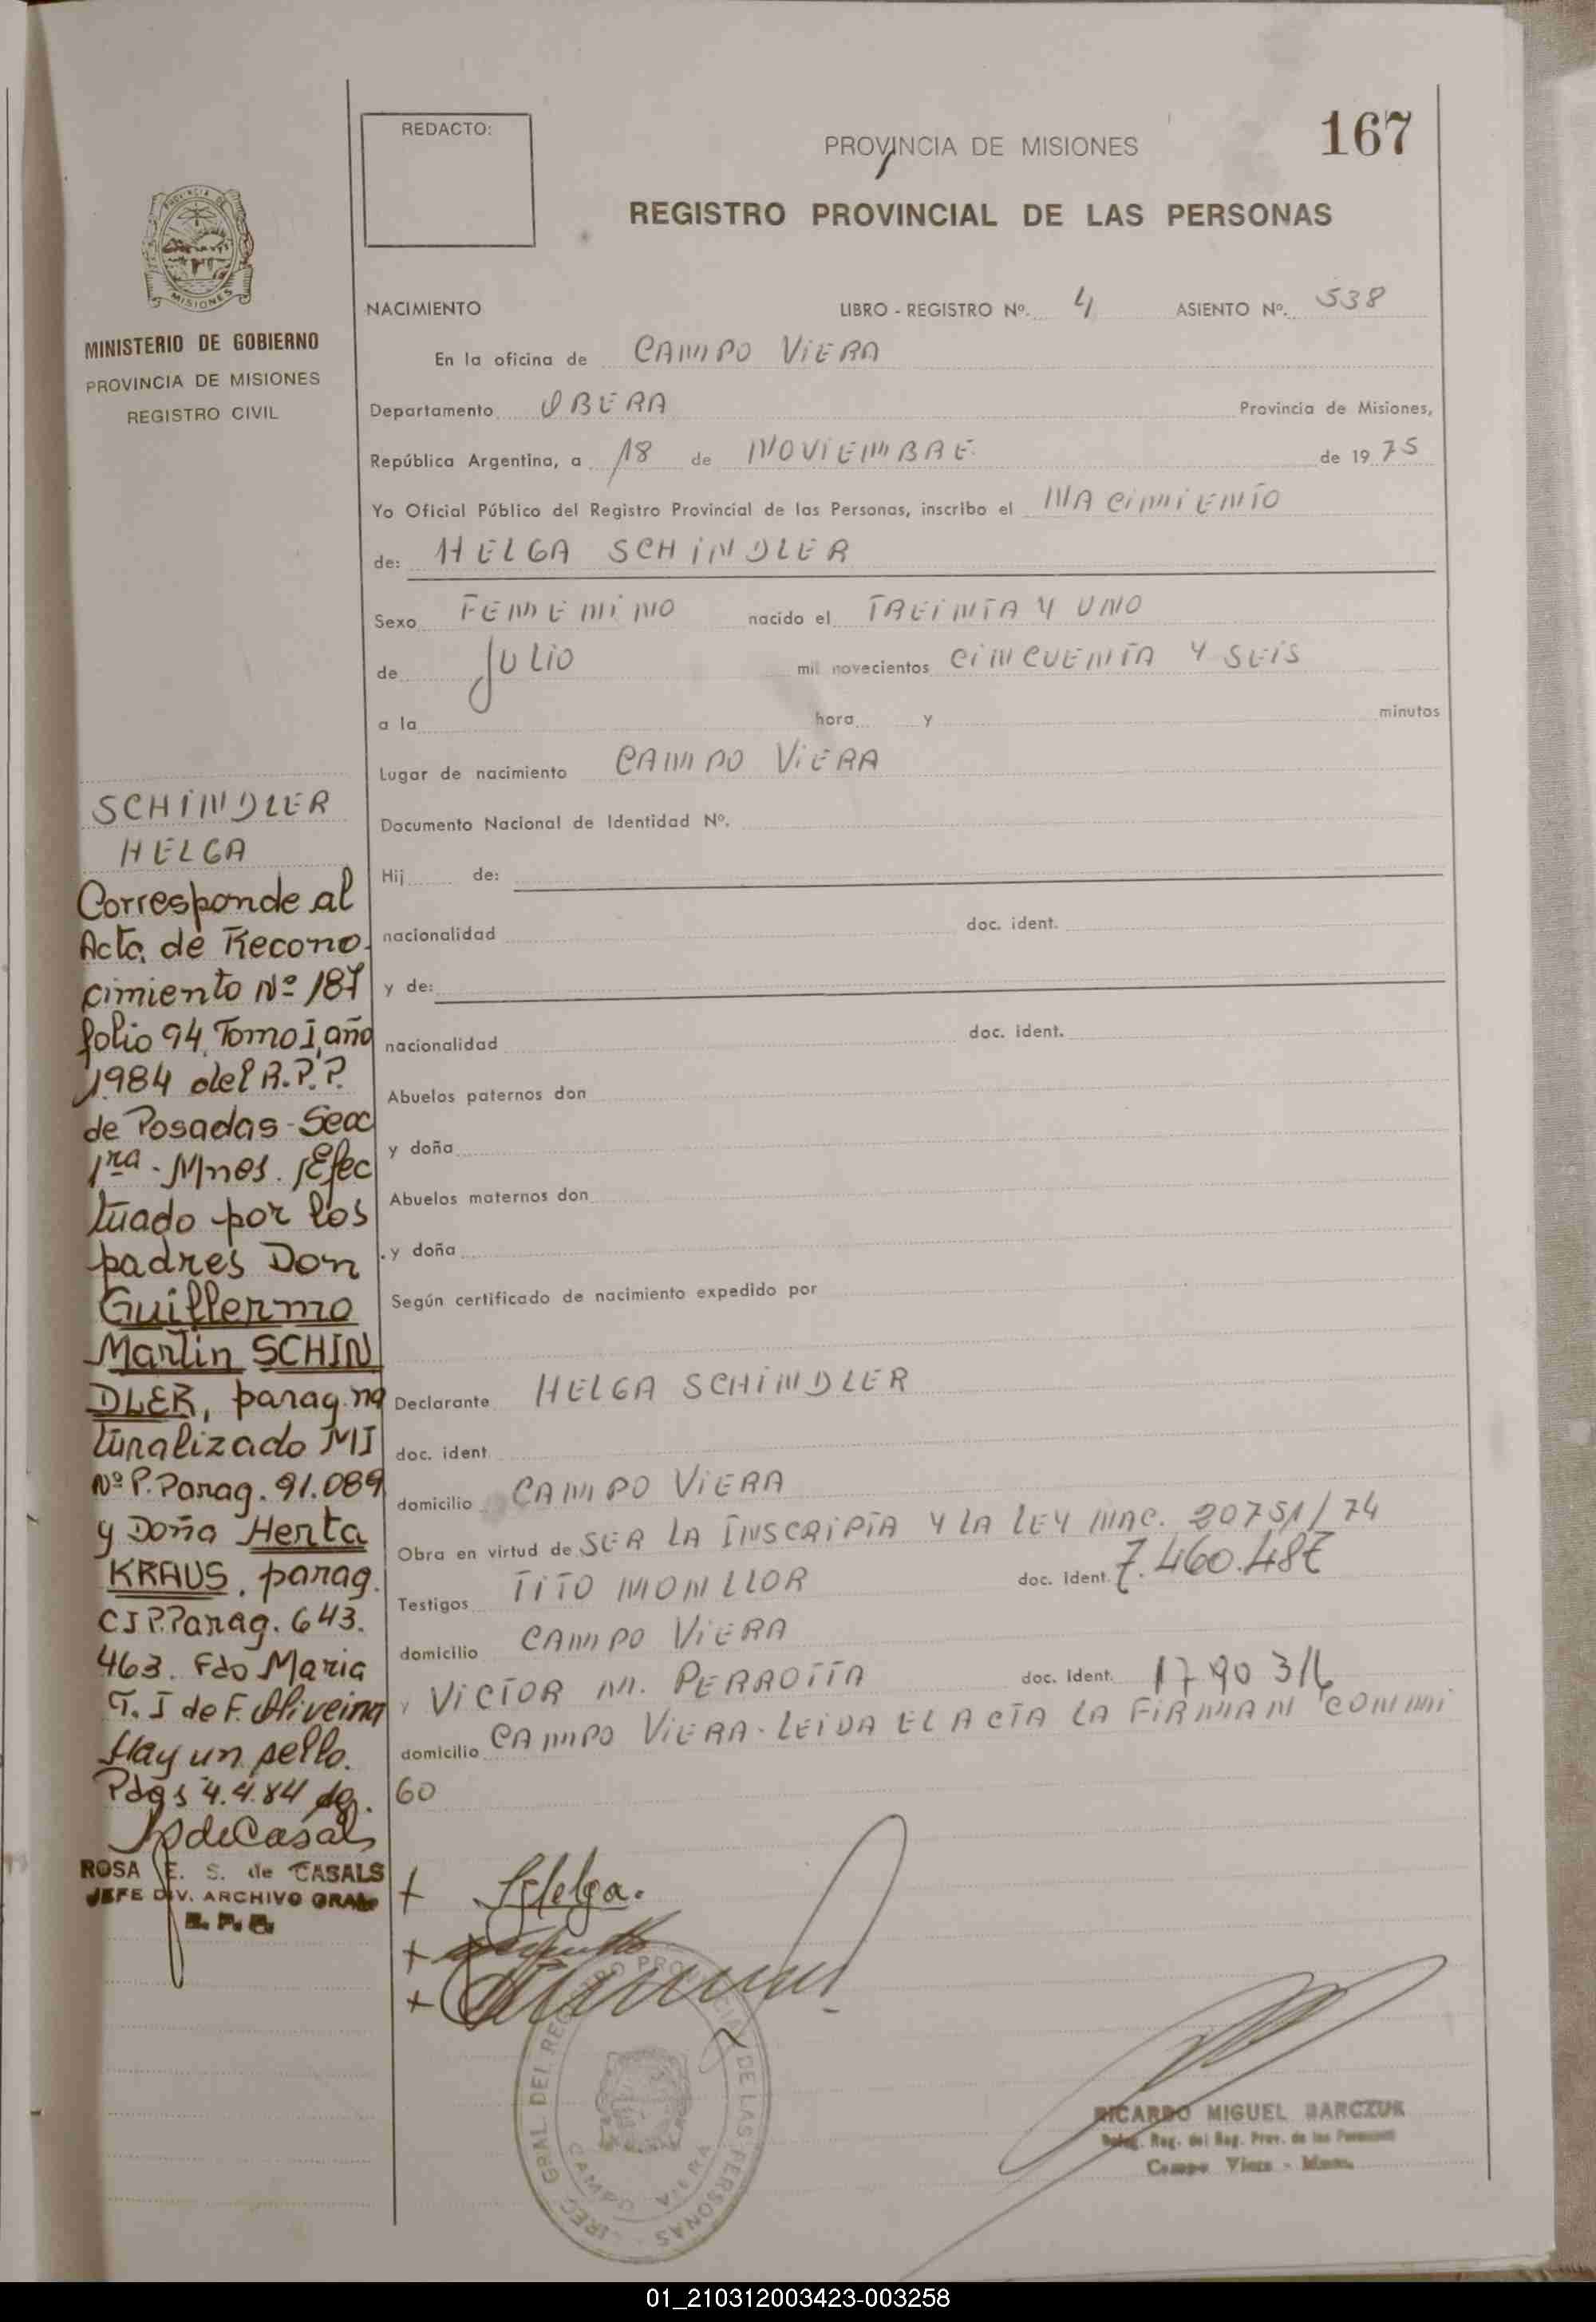 REDACTO:
PROVINCIA DE MISIONES
167
REGISTRO PROVINCIAL DE LAS PERSONAS
PROVINCIA DE
MISIONES
MINISTERIO DE GOBIERNO
PROVINCIA DE MISIONES
REGISTRO CIVIL
NACIMIENTO LIBRO - REGISTRO Nº. 4 ASIENTO Nº. 538
En la oficina de CAMPO VIERA
Departamento OBERA Provincia de Misiones,
República Argentina, a 18 de NOVIEMBRE de 1975
Yo Oficial Público del Registro Provincial de las Personas, inscribo el NACIMIENTO
de: HELGA SCHINDLER
Sexo FEMENINO nacido el TREINTA Y UNO
de JULIO mil novecientos CINCUENTA Y SEIS
a la hora y minutos
Lugar de nacimiento CAMPO VIERA
Documento Nacional de Identidad Nº.
Hij de:
nacionalidad doc. ident.
y de:
nacionalidad doc. ident.
Abuelos paternos don
y doña
Abuelos maternos don
y doña
Según certificado de nacimiento expedido por
Declarante HELGA SCHINDLER
doc. ident
domicilio CAMPO VIERA
Obra en virtud de SER LA INSCRIPTA Y LA LEY NAC. 20751/74
Testigos TITO MONLLOR doc. ident. 7.460.487
domicilio CAMPO VIERA
y VICTOR M. PERROTTA doc. ident.
domicilio CAMPO VIERA - LEIDA EL ACTA LA FIRMAN CONMI
GO
SCHINDLER
HELGA
Corresponde al
Acta de Recono
cimiento Nº 187
folio 94, Tomo I, año
1984 del R.P.P.
de Posadas - Secc
1ra - Mnes. Efec
tuado por los
padres Don
Guillermo
Martin SCHIN
DLER, parag. na
turalizado MI
Nº P. Parag. 91.089
y Doña Herta
KRAUS, parag.
CI P. Parag. 643.
463. Fdo Maria
T. I de F. Oliveira
Hay un sello.
Pdas 4.4.84
SdeCasals
ROSA E. S. de CASALS
JEFE DIV. ARCHIVO GRAL
R. P. P.
+ Helga.
+
+
DIREC. GRAL. DEL REGISTRO PROVINCIAL DE LAS PERSONAS
CAMPO VIERA
RICARDO MIGUEL BARCZUK
Deleg. Reg. del Reg. Prov. de las Personas
Campo Viera - Mnes.
01_210312003423-003258